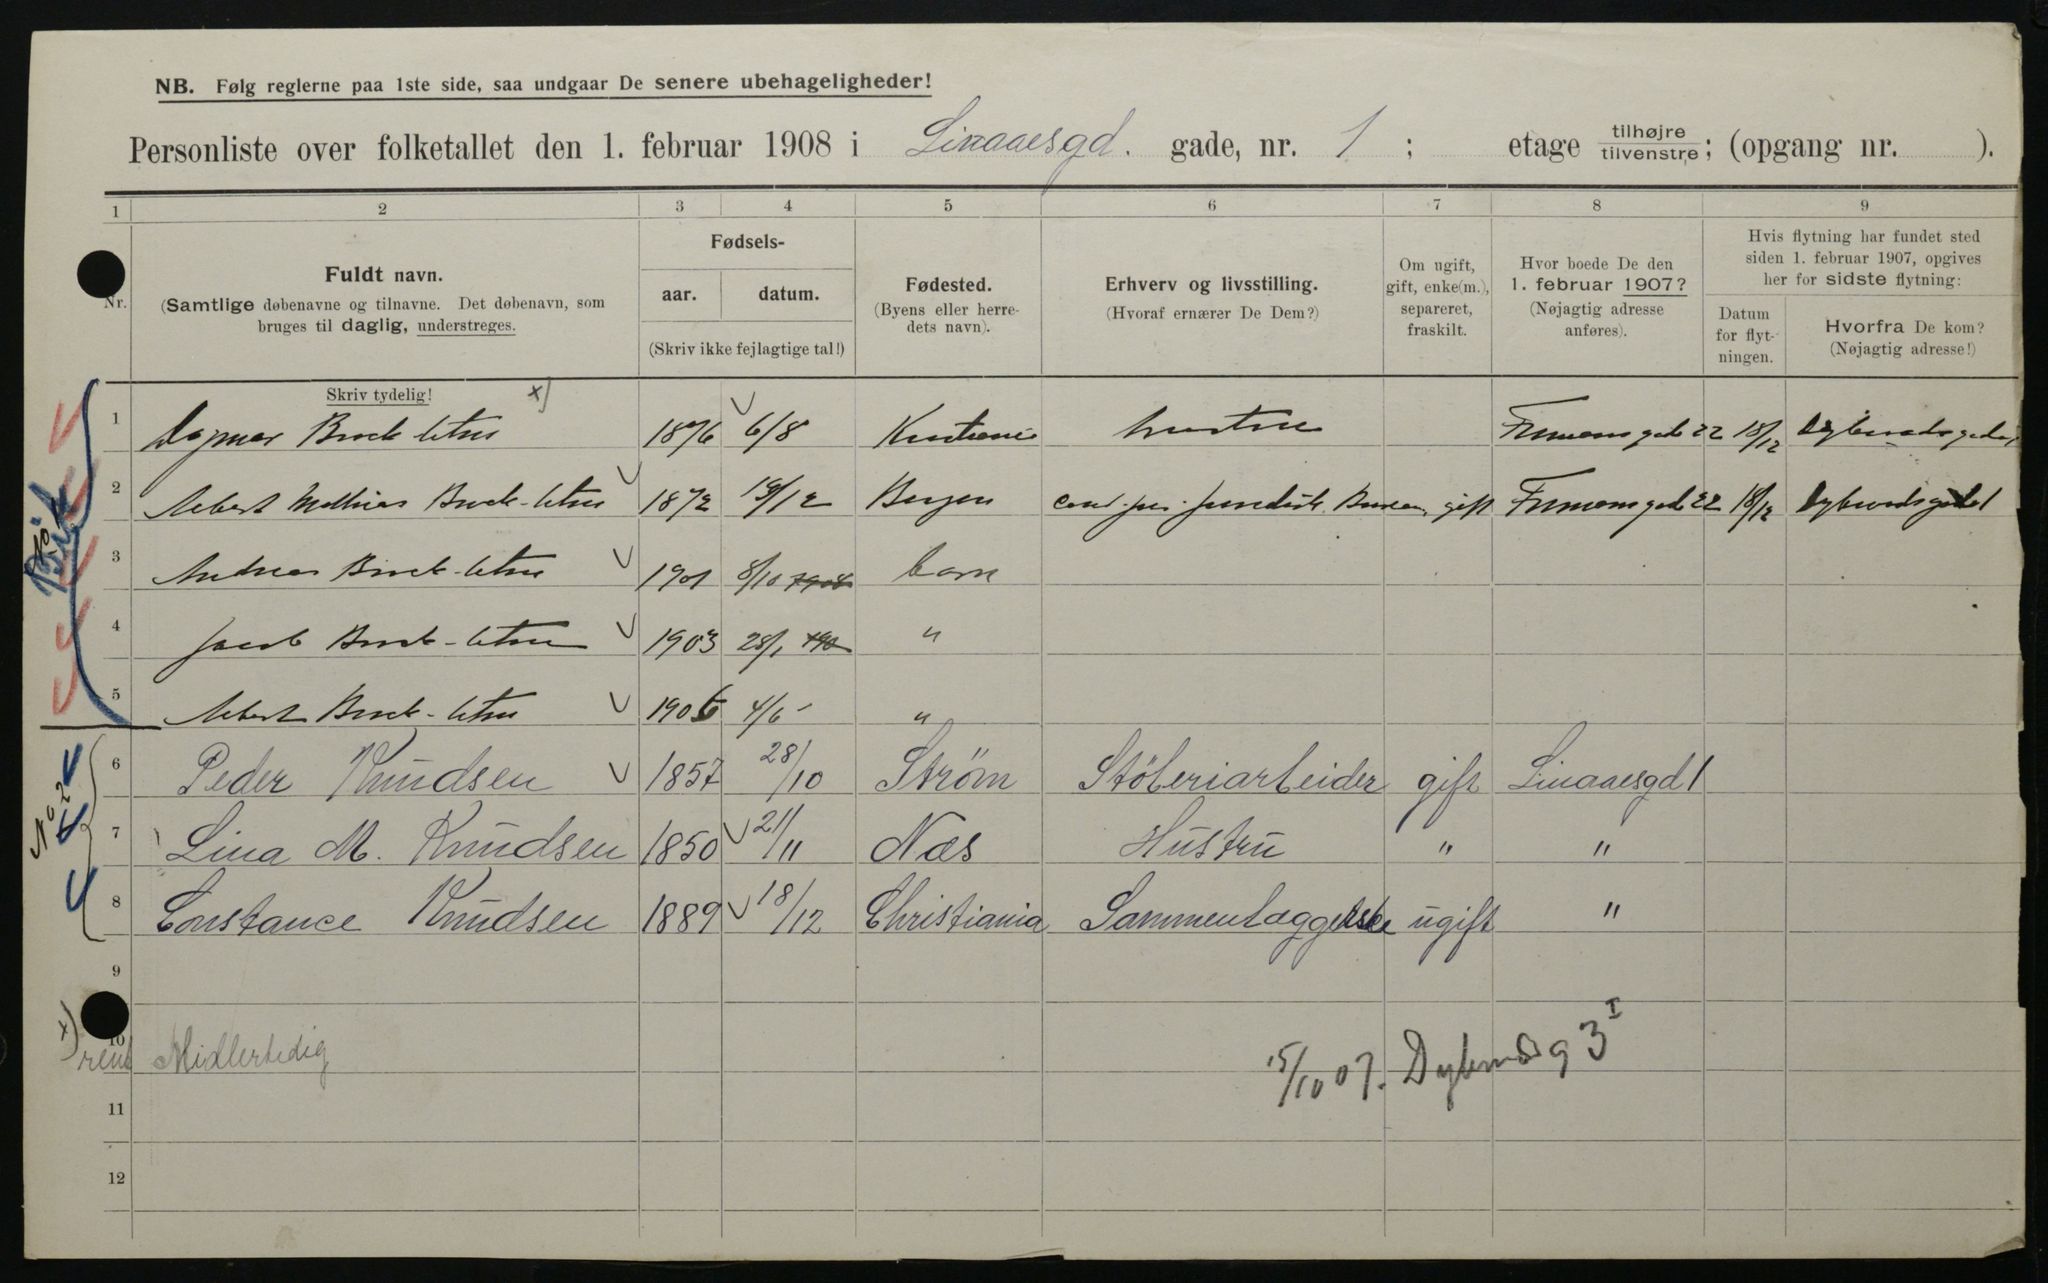 NB. Følg reglerne paa 1ste side, saa undgaar De senere ubehageligheder!
Personliste over folketallet den 1. februar 1908 i Linaaesgd. gade, nr. 1 ; etage tilhøjre tilvenstre; (opgang nr. ).
1 2 3 4 5 6 7 8 9
Nr.
Fuldt navn.
(Samtlige døbenavne og tilnavne. Det døbenavn, som
bruges til daglig, understreges.
Skriv tydelig!
Fødsels-
aar. datum.
(Skriv ikke fejlagtige tal!)
Fødested.
(Byens eller herre-
dets navn).
Erhverv og livsstilling.
(Hvoraf ernærer De Dem?)
Om ugift,
gift, enke(m.),
separeret,
fraskilt.
Hvor boede De den
1. februar 1907?
(Nøjagtig adresse
anføres).
Hvis flytning har fundet sted
siden 1. februar 1907, opgives
her for sidste flytning:
Datum
for flyt-
ningen.
Hvorfra De kom?
(Nøjagtig adresse!)
x)
1 Dagmar Brock 1876 6/8 Kristiania hustru 22 18/12
2 Albert Mathias Brock 1872 12 Bergen cand. jur. gift 22 18/12
3 Andreas Brock 1901 8/10 barn
4 Jacob Brock 1903 28/1 "
5 Albert Brock 1906 4/6 "
6 Peder Knudsen 1857 28/10 Strøm Støberiarbeider gift Linaaesgd 1
7 Lina M. Knudsen 1850 21/11 Næs Hustru " "
8 Constance Knudsen 1889 18/12 Christiania Sammenlæggerske ugift "
9
10
x) Midlertidig
15/10 07. 3 I
11
12